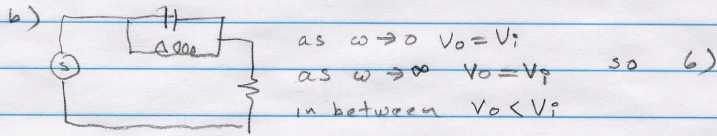 b)
S
as ω → 0 Vo = Vi
as ω → ∞ Vo = Vi so 6)
in between Vo < Vi